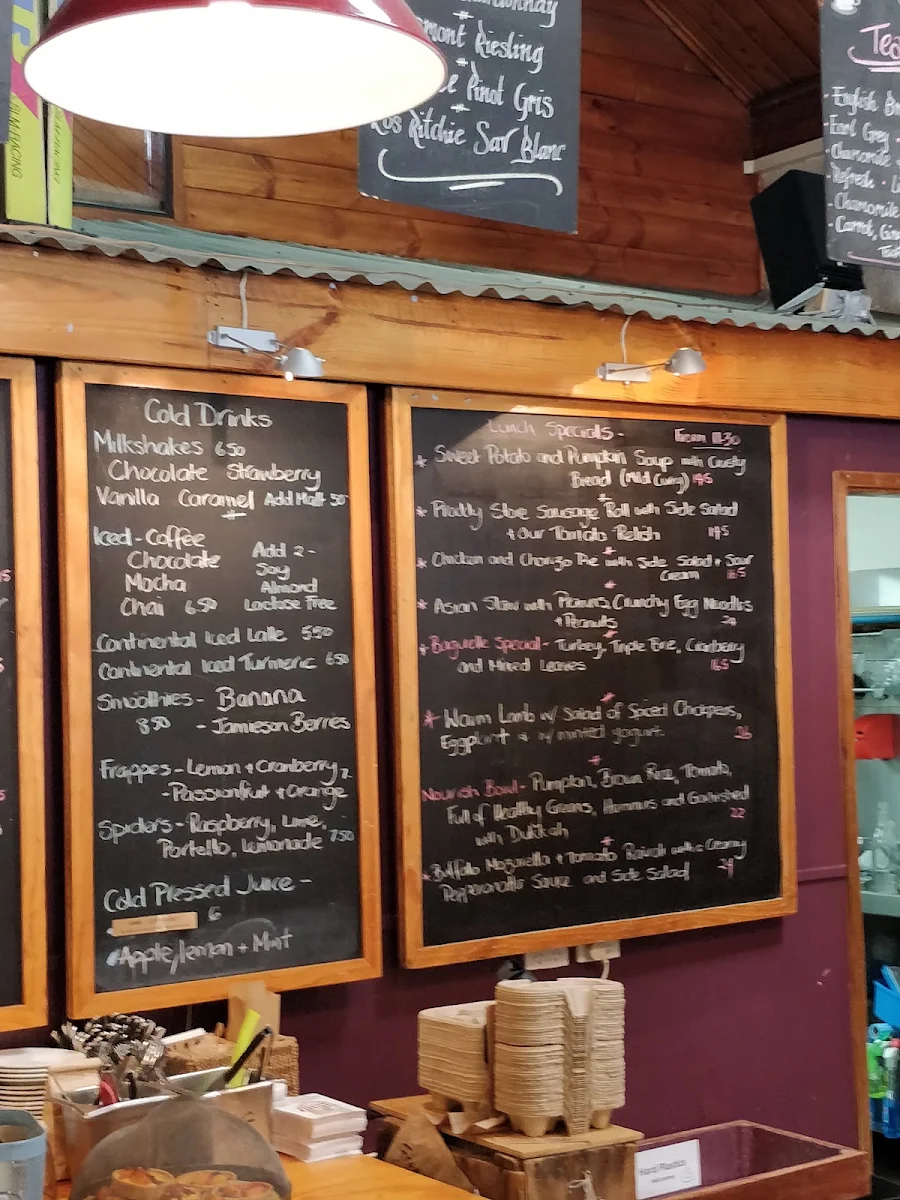 Riesling
Pinot Gris
Ros Ritchie Sav Blanc
Tea
English
Earl Grey -
Chamomile
Refresh -
- Chamomile
- Carrot,
Cold Drinks
Milkshakes 650
Chocolate Strawberry
Vanilla Caramel Add Malt 50
Iced-Coffee
Chocolate Add 2-
Mocha Soy
Chai 650 Almond
Lactose Free
Continental Iced Latte 550
Continental Iced Turmeric 650
Smoothies - Banana
850 - Jamieson Berries
Frappes - Lemon + Cranberry
- Passionfruit + Orange
Spiders - Raspberry, Lime,
Portello, Lemonade 750
Cold Pressed Juice -
6
Apple/lemon + Mint
Lunch Specials - From 11-30
* Sweet Potato and Pumpkin Soup with Crusty
Bread (Mild Curry)
* Ploddy Stove Sausage Roll with Side Salad
+ Our Tomato Relish
* Chicken and Chorizo Pie with Side Salad + Sour
Cream 16.5
* Asian Slaw with Prawns, Crunchy Egg Noodles
+ Peanuts 24
* Baguette Special - Turkey, Triple Brie, Cranberry
and Mixed Leaves 16.5
* Warm Lamb w/ Salad of Spiced Chickpeas,
Eggplant + w/ minted yogurt. 26
Nourish Bowl - Pumpkin, Brown Rice, Tomato,
Full of Healthy Greens, Hommus and Garnished
with Dukkah 22
* Buffalo Mozarella + Tomato Ravioli with a Creamy
Sauce and Side Salad 24
Hard Plastics